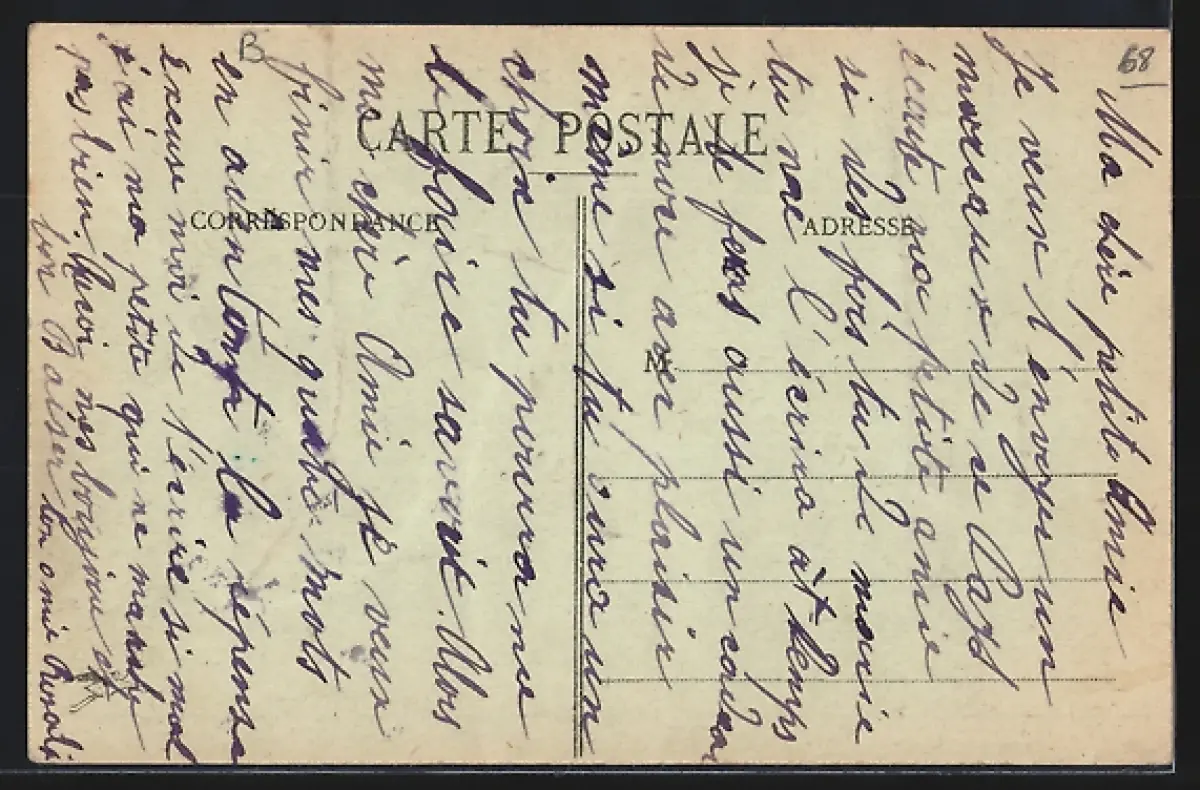 68
B
CARTE POSTALE
CORRESPONDANCE
ADRESSE
M
Ma chère petite Amie
Je veux t'envoyer un
morceaux de ce Pays
écoute moi petite amie
si des fois tu te marie
tu l'écrira à temps
je te feras aussi un cadeau
venire avec plaisir
même si tu aura un
époux tu poura me
le faire savoir. Alors
ma chère Amie je veux
finir mes quatre mots
en attendant la réponse
Excuse moi de t'écrire si mal
j'ai ma petite qui ne marche
pas bien. Reçoi mes
bon Baiser ton amie